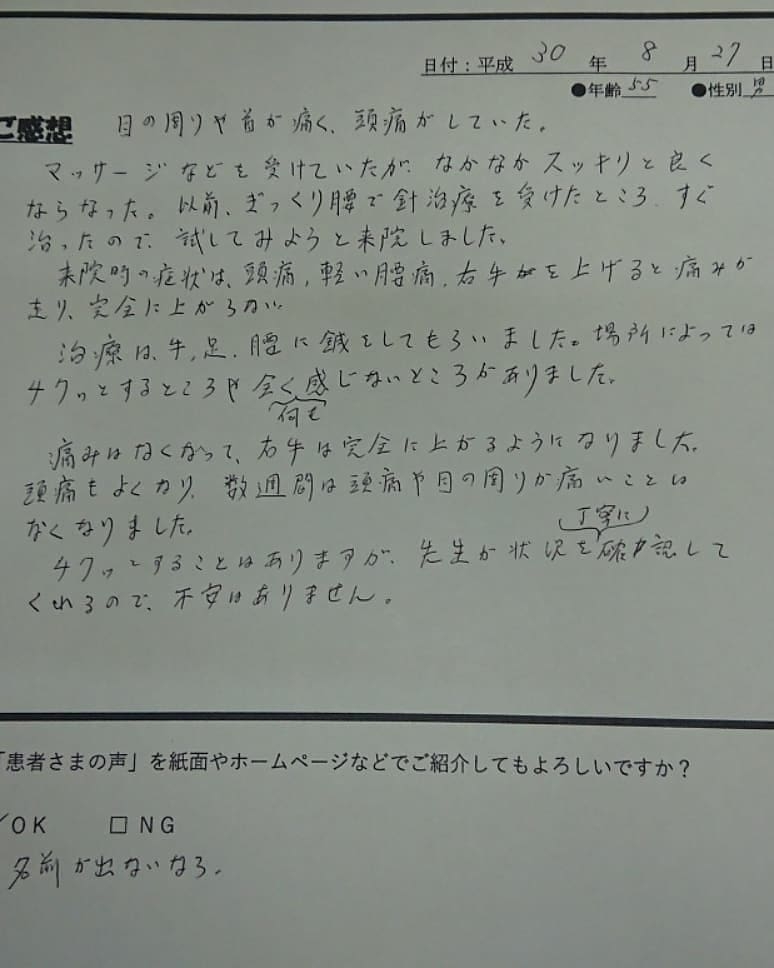 日付：平成 30 年 8 月 27 日
●年齢 55 ●性別 男
ご感想 目の周りや首が痛く、頭痛がしていた。
マッサージなどを受けていたが、なかなかスッキリと良く
ならなった。以前、ぎっくり腰で針治療を受けたところ、すぐ
治ったので、試してみようと来院しました。
来院時の症状は、頭痛、軽い腰痛、右手を上げると痛みが
走り、完全に上がらない
治療は、手、足、腰に鍼をしてもらいました。場所によっては
チクッとするところや全く感じないところがありました。
何も
痛みはなくなって、右手は完全に上がるようになりました。
頭痛もよくなり、数週間は頭痛や目の周りが痛いことは
なくなりました。
丁寧に
チクッとすることはありますが、先生が状況を確認して
くれるので、不安はありません。
「患者さまの声」を紙面やホームページなどでご紹介してもよろしいですか？
OK □ NG
名前が出ないなら。